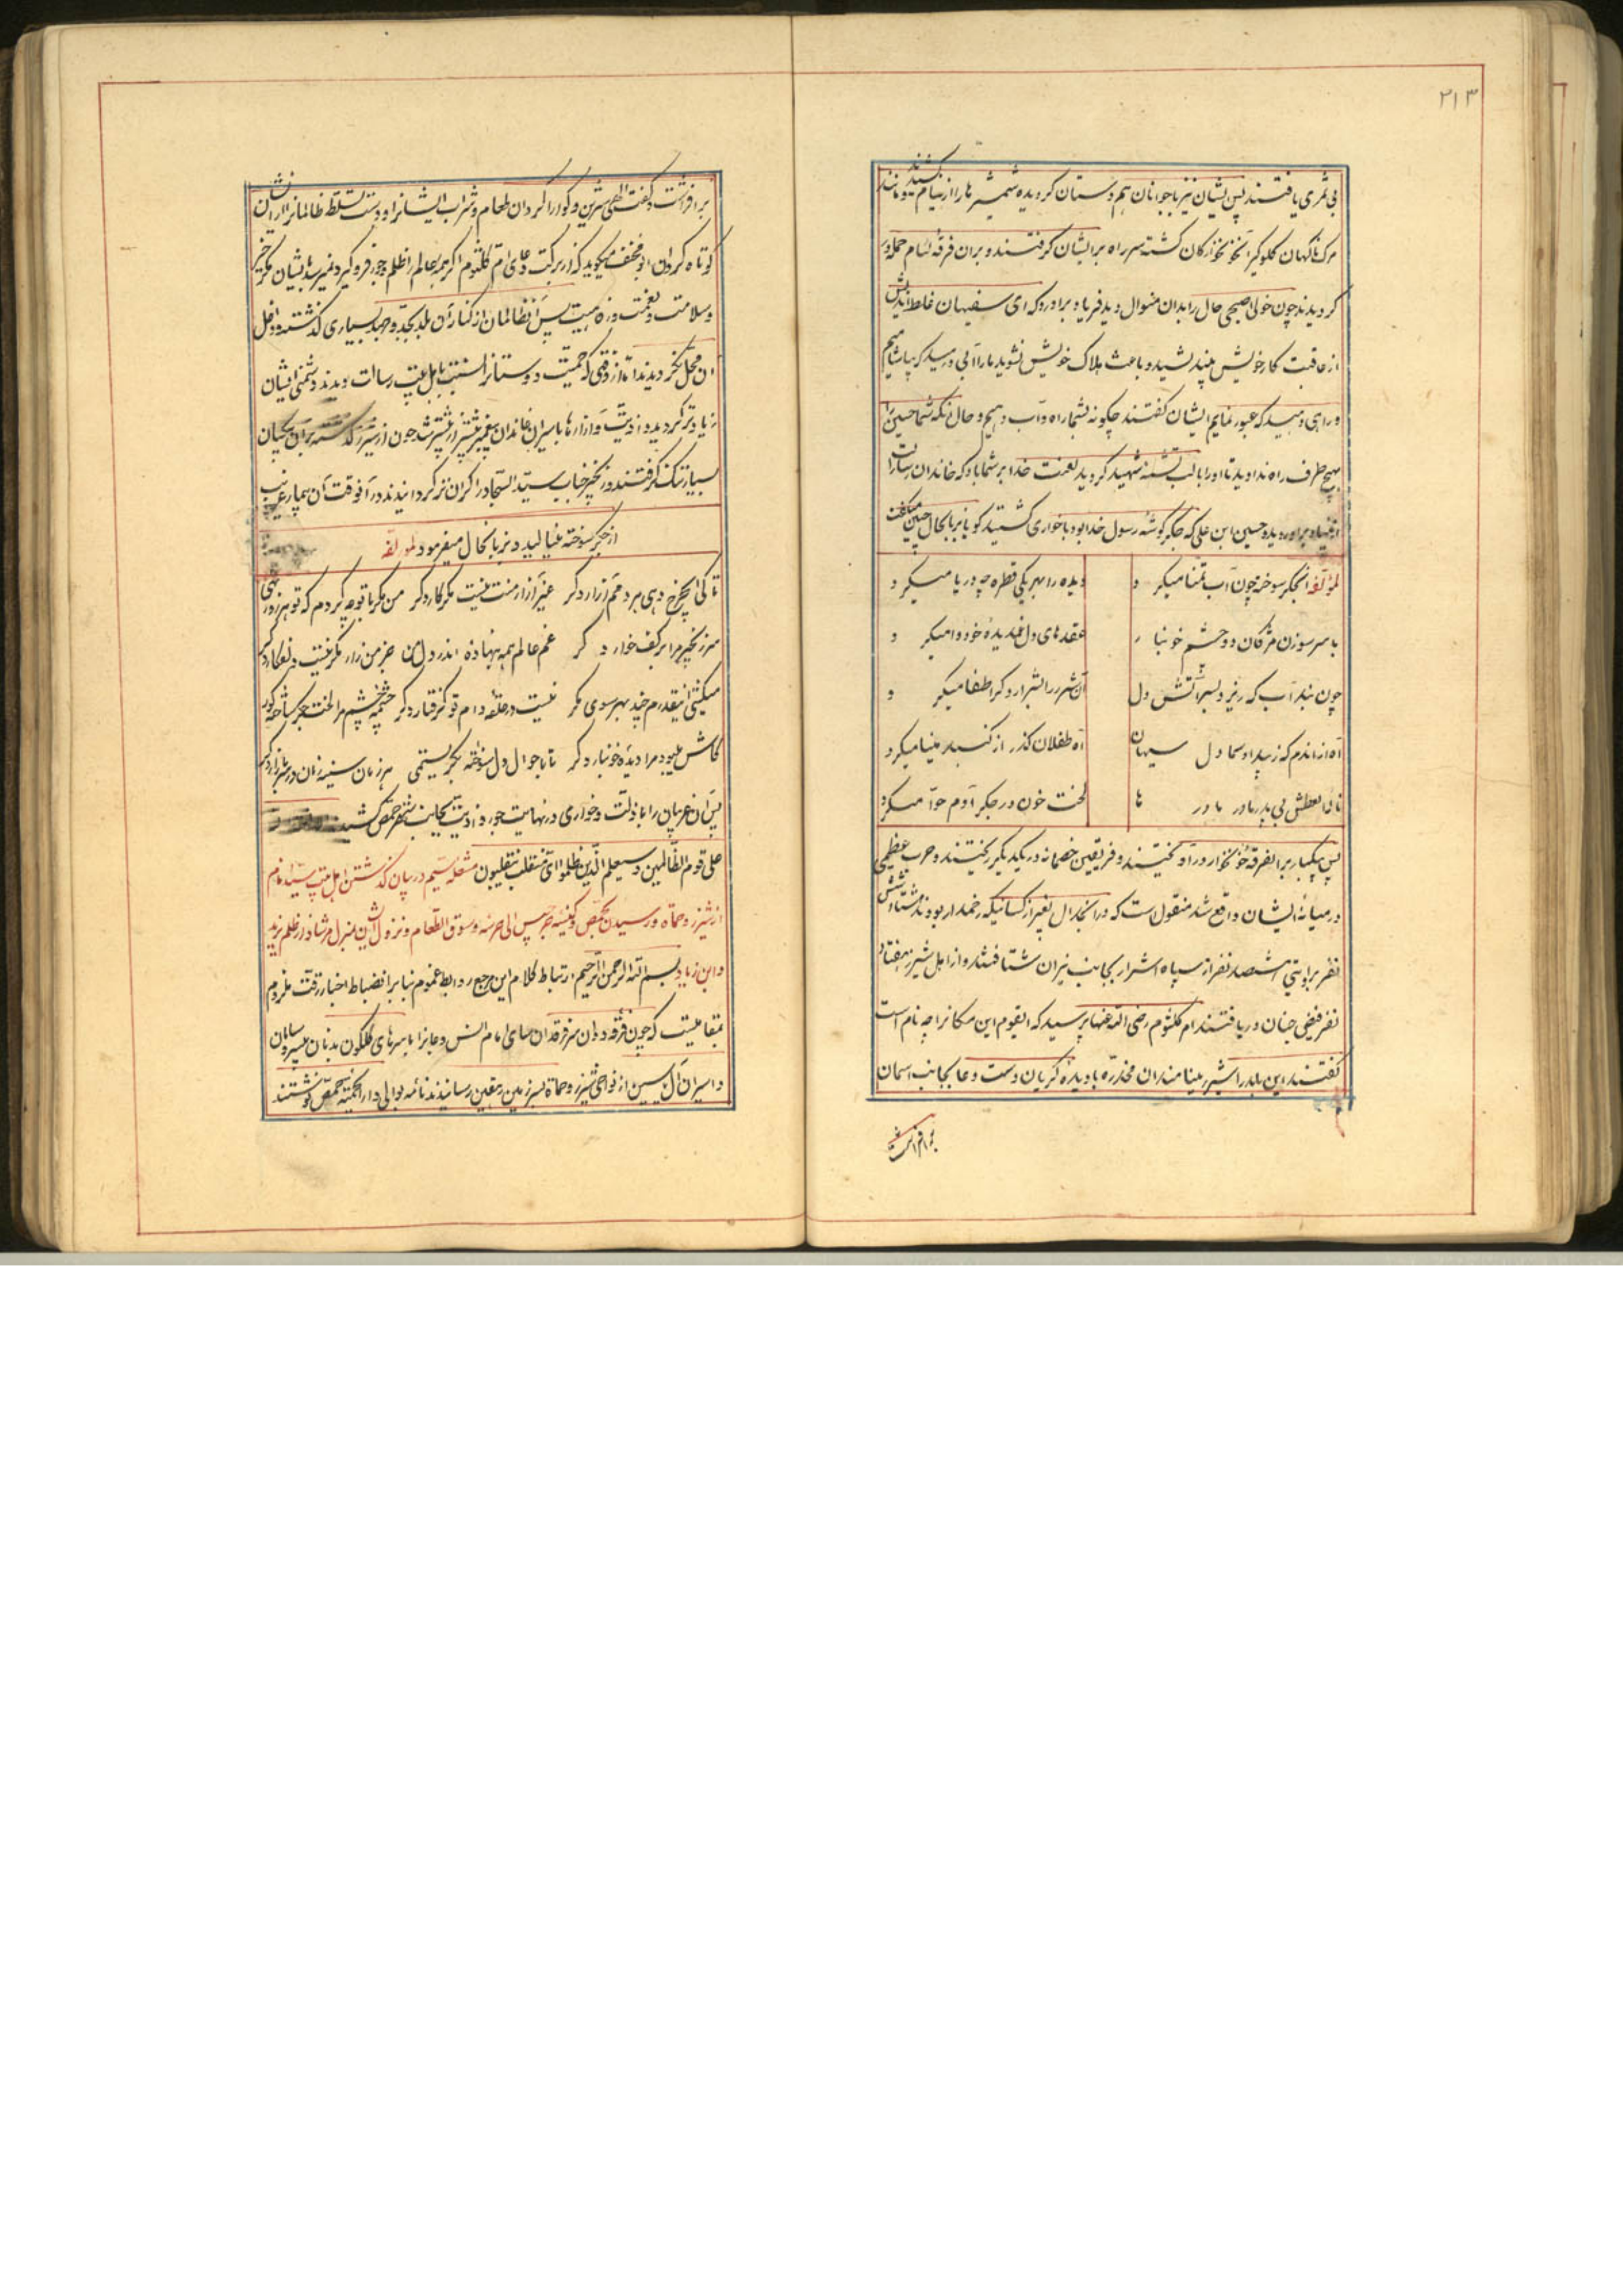 ۲۱۳
بی ثمری یافتند پس پیشان نیز با جوانان هم دستان کردیده شمشیر ها را از نیام کشیدند و مانند
مرک ناکهان کلوکیر آنخونخوارکان کشته سر راه بر ایشان کرفتند و بران فرقه لئام حمله ور
کردیدند چون خولی اصبحی حال را بدان منوال دید فریاد براورد که ای سفیهان غلط اندیش
از عاقبت کار خویش بیندیشید و باعث هلاک خویش نشوید ما را آبی دهید که بیاشامیم
و راهی دهید که عبور نمایم ایشان کفتند چکونه بشما راه و آب دهیم و حال انکه شما حسین را
بهیچ طرف راه ندادید تا او را با لب تشنه شهید کردید لعنت خدا بر شما باد که خاندان رسالت را
حسین ابن علی که جکر کوشه رسول خدا بود با خواری کشتید کویا بزبانحال چنین میکفت
لمؤلفه انجکر سوخته چون آب تمنا میکرد
دیده را بهر یکی قطره چه دریا میکرد
با سر سوزن مژکان دو چشم خونبار
عقدهای دل غمدیدهٔ خود وا میکرد
چون بنداب که ریزد بسر آتش دل
آن شرر را بشرار دکر اطفا میکرد
آه از اندم که زبیداد سیه‌ان
آه طفلان کذر از کنبد مینا میکرد
نالهٔ العطش بی پدر و مادر ها
لخت خون در جکر آدم حوا میکرد
پس یکبار بر انفرقه خونخوار در آویختند و فریقین خصمانه در یکدیکر ریختند و حرب عظیمی
در میانهٔ ایشان واقع شد منقول است که در انجدال بغیر از کسانیکه زخمدار بودند ششصد
نفر بروایتی هشتصد نفر از سپاه اشرار بجانب نیران شتافتند و از اهل شیزر هفتاد
نفر فیض جنان دریافتند ام کلثوم رضی الله عنها پرسید که ایقوم این مکانرا چه نام است
کفتند این بلد را شیزر مینامند ان مخدره با دیدهٔ کریان دست دعا بجانب اسمان
برافراشت
برافراشت و کفت الهی شیرین و کوارا کردان طعام و شراب ایشانرا و دست تسلط ظالمانرا از ایشان
کوتاه کردان ابو مخنف میکوید که از برکت دعای ام کلثوم اکر همه عالم را ظلم و جور فرو کیرد نمیرسد بایشان مکر خیر
و سلامت و نعمت و رفاهیت پس آنظالمان از کنار آن بلد بجد و جهد بسیاری کذشتند و داخل
ان محل نکردیدند اما از وقتی که حمیت دوستانرا نسبت باهل بیت رسالت دیدند دشمنی ایشان
زیادتر کردید و اذیت و آزار ها با سیران خاندان پیغمبر بیشتر از پیشتر شد چون از شیزر کذشتند بر آن بیکسان
بسیار تنک کرفتند و زنجیر جناب سید السجاد را کران تر کردانیدند در آنوقت آن بیمار غریب
از جکر سوخته مینالید و بزبانحال میفرمود لمؤلفه
تا کی ایچرخ دهی هر دمم آزار دکر غیر آزار منت نیست مکر کار دکر من مکر با تو چه کردم که تو هر روز نهی
سر زنجیر مرا بر کف خوار دکر غم عالم همه بنهاده اندر دل من جز من زار مکر نیست
میکشی اینقدرم چند بهر سوی مکر نیست در حلقه دام تو کرفتار دکر
کاش میبود مرا دیدهٔ خونبار دکر تا باحوال دل سوخته بکریستمی هر زمان سینه زنان در سر بازار دکر
پس آن غریبان را با ذلت و خواری در نهایت جور و اذیت بجانب شهر حمص کشیدند
علی قوم الظالمین و سیعلم الذین ظلموا ای منقلب ینقلبون مشعله سیم در بیان کذشتن اهل بیت سید انام
از شیزر و حماه و رسیدن بحمص و کنیسه جرجیس الی حرسه و سوق الطعام و نزول
و ابن زیاد بسم الله الرحمن الرحیم ارتباط کلام این مرجع روابط غموم بنا بر انضباط اخبار رقت ملزوم
بمقامیست که چون فرقه دوان سر فرقدان سای امام انس و جانرا با سرهای کلکون بدنان
و اسیران آل یسین از نواحی شیزر و حماة بسرزمین رسانیدند نامه بوالی دار الحکمه حمص نوشتند